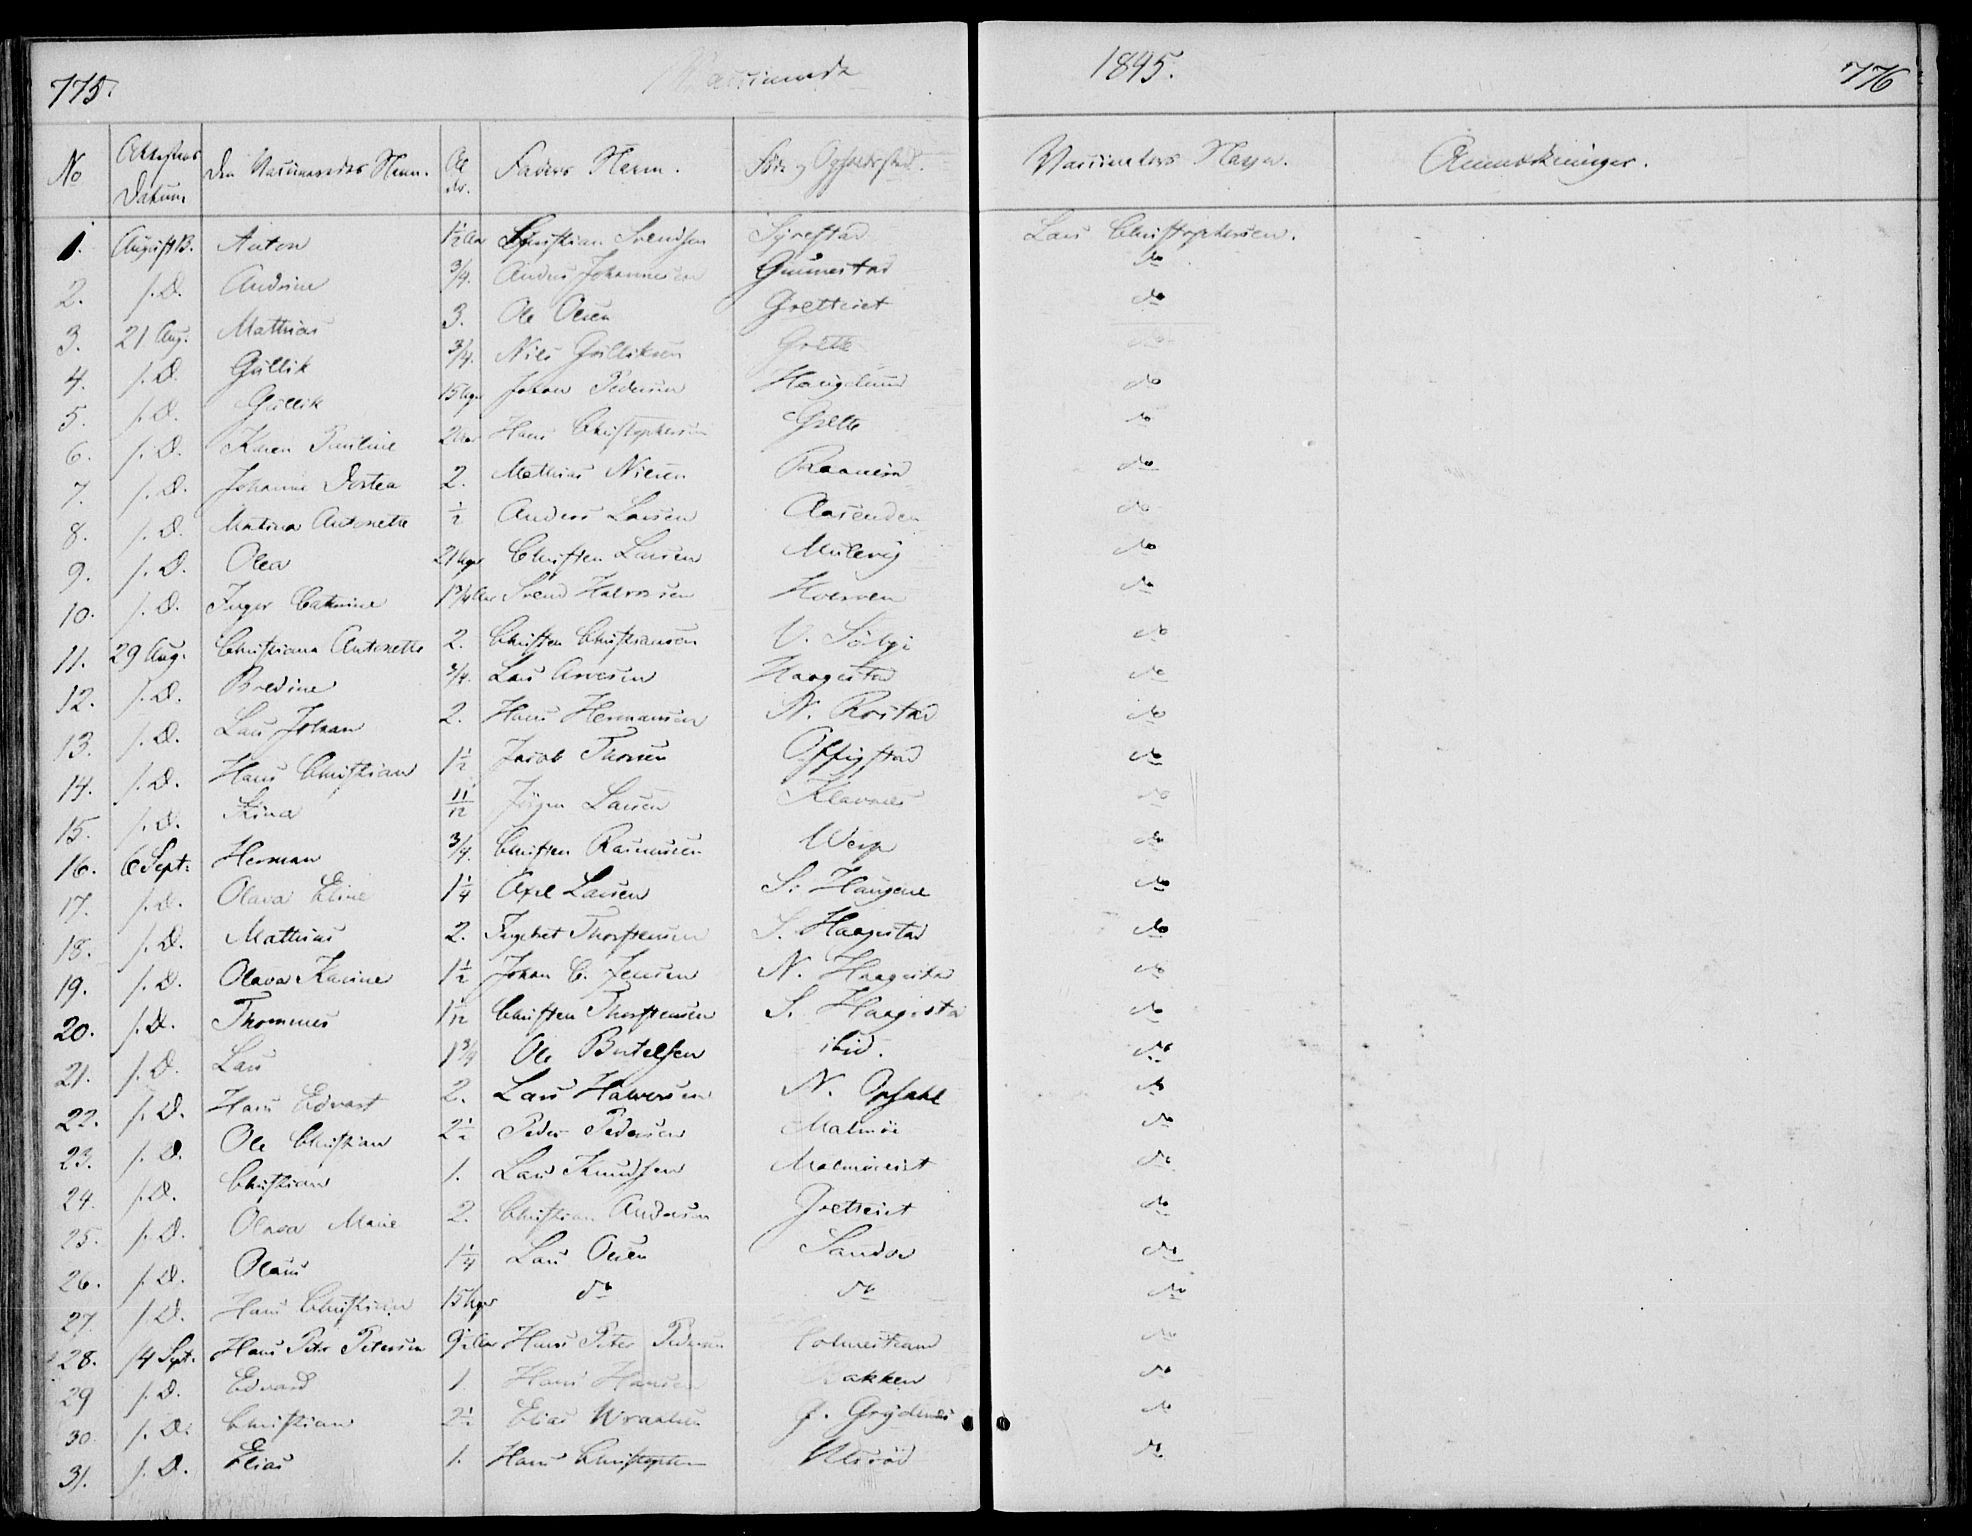 775. Vaccinerede 1845. 776
No Attestens Datum Den Vaccineredes Navn. Alder. Faders Navn. Føde og Opholdssted. Vaccinateurs Navn. Anmærkninger.
1. August 13. Anton 1½ Aar Christian Svendsen Syrestad Lars Christophersen.
2. s. D. Andrine 3/4. Anders Johannesen Gunnestad do
3. 21 Aug. Mathias 3. Ole Olsen Gretteiet do
4. s. D. Gullik 3/4. Niels Gulliksen Grette do
5. s. D. Gullik 15 Uger Johan Pedersen Haugelund do
6. s. D. Karen Pauline 2 Aar Hans Christophersen Grette do
7. s. D. Johanne Dortea 2. Mathias Nielsen Raanerød do
8. s. D. Matina Antonette ½ Anders Larsen Aasenden do
9. s. D. Olea 21 Uger Christen Larsen Mulevig do
10. s. D. Inger Cathrine 1 3/4 Aar Svend Halvorsen Hverven do
11. 29 Aug. Christiana Antonette 2. Christen Christiansen V. Søbye do
12. s. D. Bredine 3/4. Lars Arvesen Haagestad do
13. s. D. Lars Johan 2. Hans Hermansen N. Rostad do
14. s. D. Hans Christian 1½ Jacob Thorsen Offigstad do
15. s. D. Stina 11/12 Jørgen Larsen Klavenes do
16. 6 Sept. Herman 3/4. Christen Rasmussen Weip do
17. s. D. Olava Eline 1¼ Axel Larsen S. Haugene do
18. s. D. Mathias 2. Ingebret Thorstensen S. Haagestad do
19. s. D. Olava Karine 1½ Johan C. Jensen N. Haagestad do
20. s. D. Thommes 1 1/12 Christen Thorstensen S. Haagestad do
21. s. D. Lars 1 3/4 Ole Bertelsen ibid. do
22. s. D. Hans Edvart 2. Lars Halvorsen N. Opsahl do
23. s. D. Ole Christian 2½ Peder Pedersen Malmøe do
24. s. D. Christian 1. Lars Knudsen Malmøeiet do
25. s. D. Olava Marie 2. Christian Andersen Gretteiet do
26. s. D. Olaus 1¼ Lars Olsen Sandøe do
27. s. D. Hans Christian 15 Uger do do do
28. 14 Sept. Hans Peter Petersen 9½ Aar Hans Peter Pedersen Holmestrand do
29 s. D. Edvard 1. Hans Hansen Bakken do
30. s. D. Christian 2½ Elias G. do
31. s. D. Elias 1. Hans Christophersen do